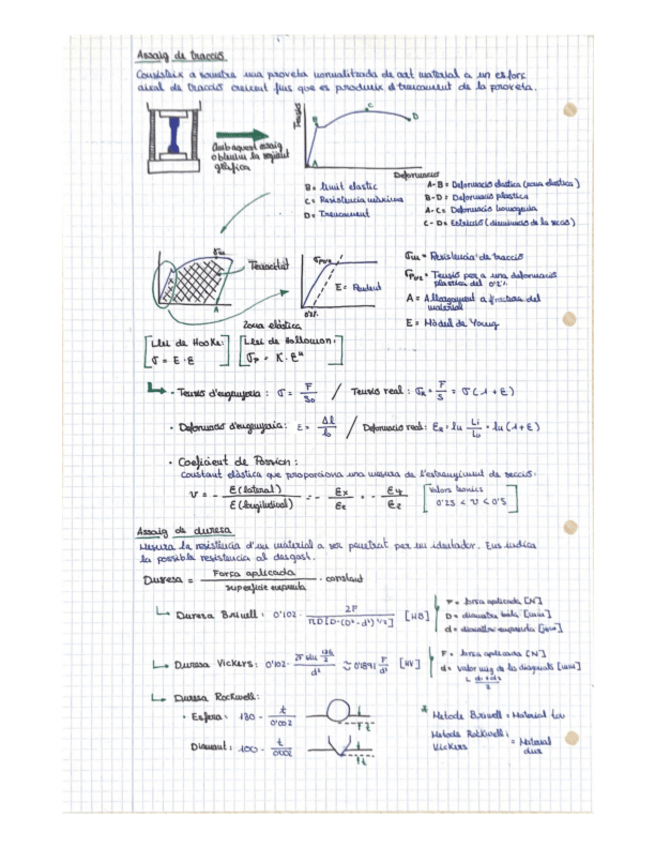 Assaig de tracció
Consisteix a sometre una proveta normalitzada de cert material a un esforç
axial de tracció creixent fins que es produeix el trencament de la proveta.
Tensió
A
B
C
D
Deformació
Amb aquest assaig
obtenim la següent
gràfica
B= límit elàstic
C= Resistència màxima
D= Trencament
A-B= Deformació elàstica (zona elàstica)
B-D= Deformació plàstica
A-C= Deformació homogènia
C-D= Estricció (disminució de la secció)
Tenacitat
A
E= Pendent
0'2%
Zona elàstica
σm = Resistència de tracció
Tensió per a una deformació
plàstica del 0'2%
A = Allargament a fractura del
material
E = Mòdul de Young
Llei de Hooke:
σ = E · ε
Llei de Hollomon:
- Tensió d'enginyeria: σ = F/S₀ / Tensió real: σR = F/S = σ(1+ε)
· Deformació d'enginyeria: ε = Δl/l₀ / Deformació real: εR = ln Li/L₀ = ln(1+ε)
· Coeficient de Poisson:
Constant elàstica que proporciona una mesura de l'estrenyiment de secció.
ν = - ε(lateral)/ε(longitudinal) = - εx/εz = - εy/εz
Valors teòrics
0'25 < ν < 0'5
Assaig de duresa
Mesura la resistència d'un material a ser penetrat per un identador. Ens indica
la possible resistència al desgast.
Duresa = Força aplicada/superfície empremta · constant
Duresa Brinell: 0'102 · 2F/πD[D-(D²-d²)^1/2] [HB]
F= força aplicada [N]
D= diàmetre bola [mm]
d= diàmetre empremta [mm]
Duresa Vickers: 0'102 · 2F sin 136/2 / d² ≈ 0'1891 F/d² [HV]
F= força aplicada [N]
d= valor mig de les diagonals [mm]
d₁+d₂/2
Duresa Rockwell:
· Esfera: 130 - t/0'002
t
Diamant: 100 - t/0'002
t
* Mètode Brinell = Material tou
Mètode Rockwell i
Vickers = Material
dur